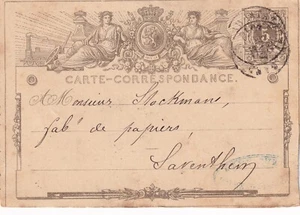 CARTE-CORRESPONDANCE.
A Monsieur Stockmans,
fabt de papiers,
Saventhem